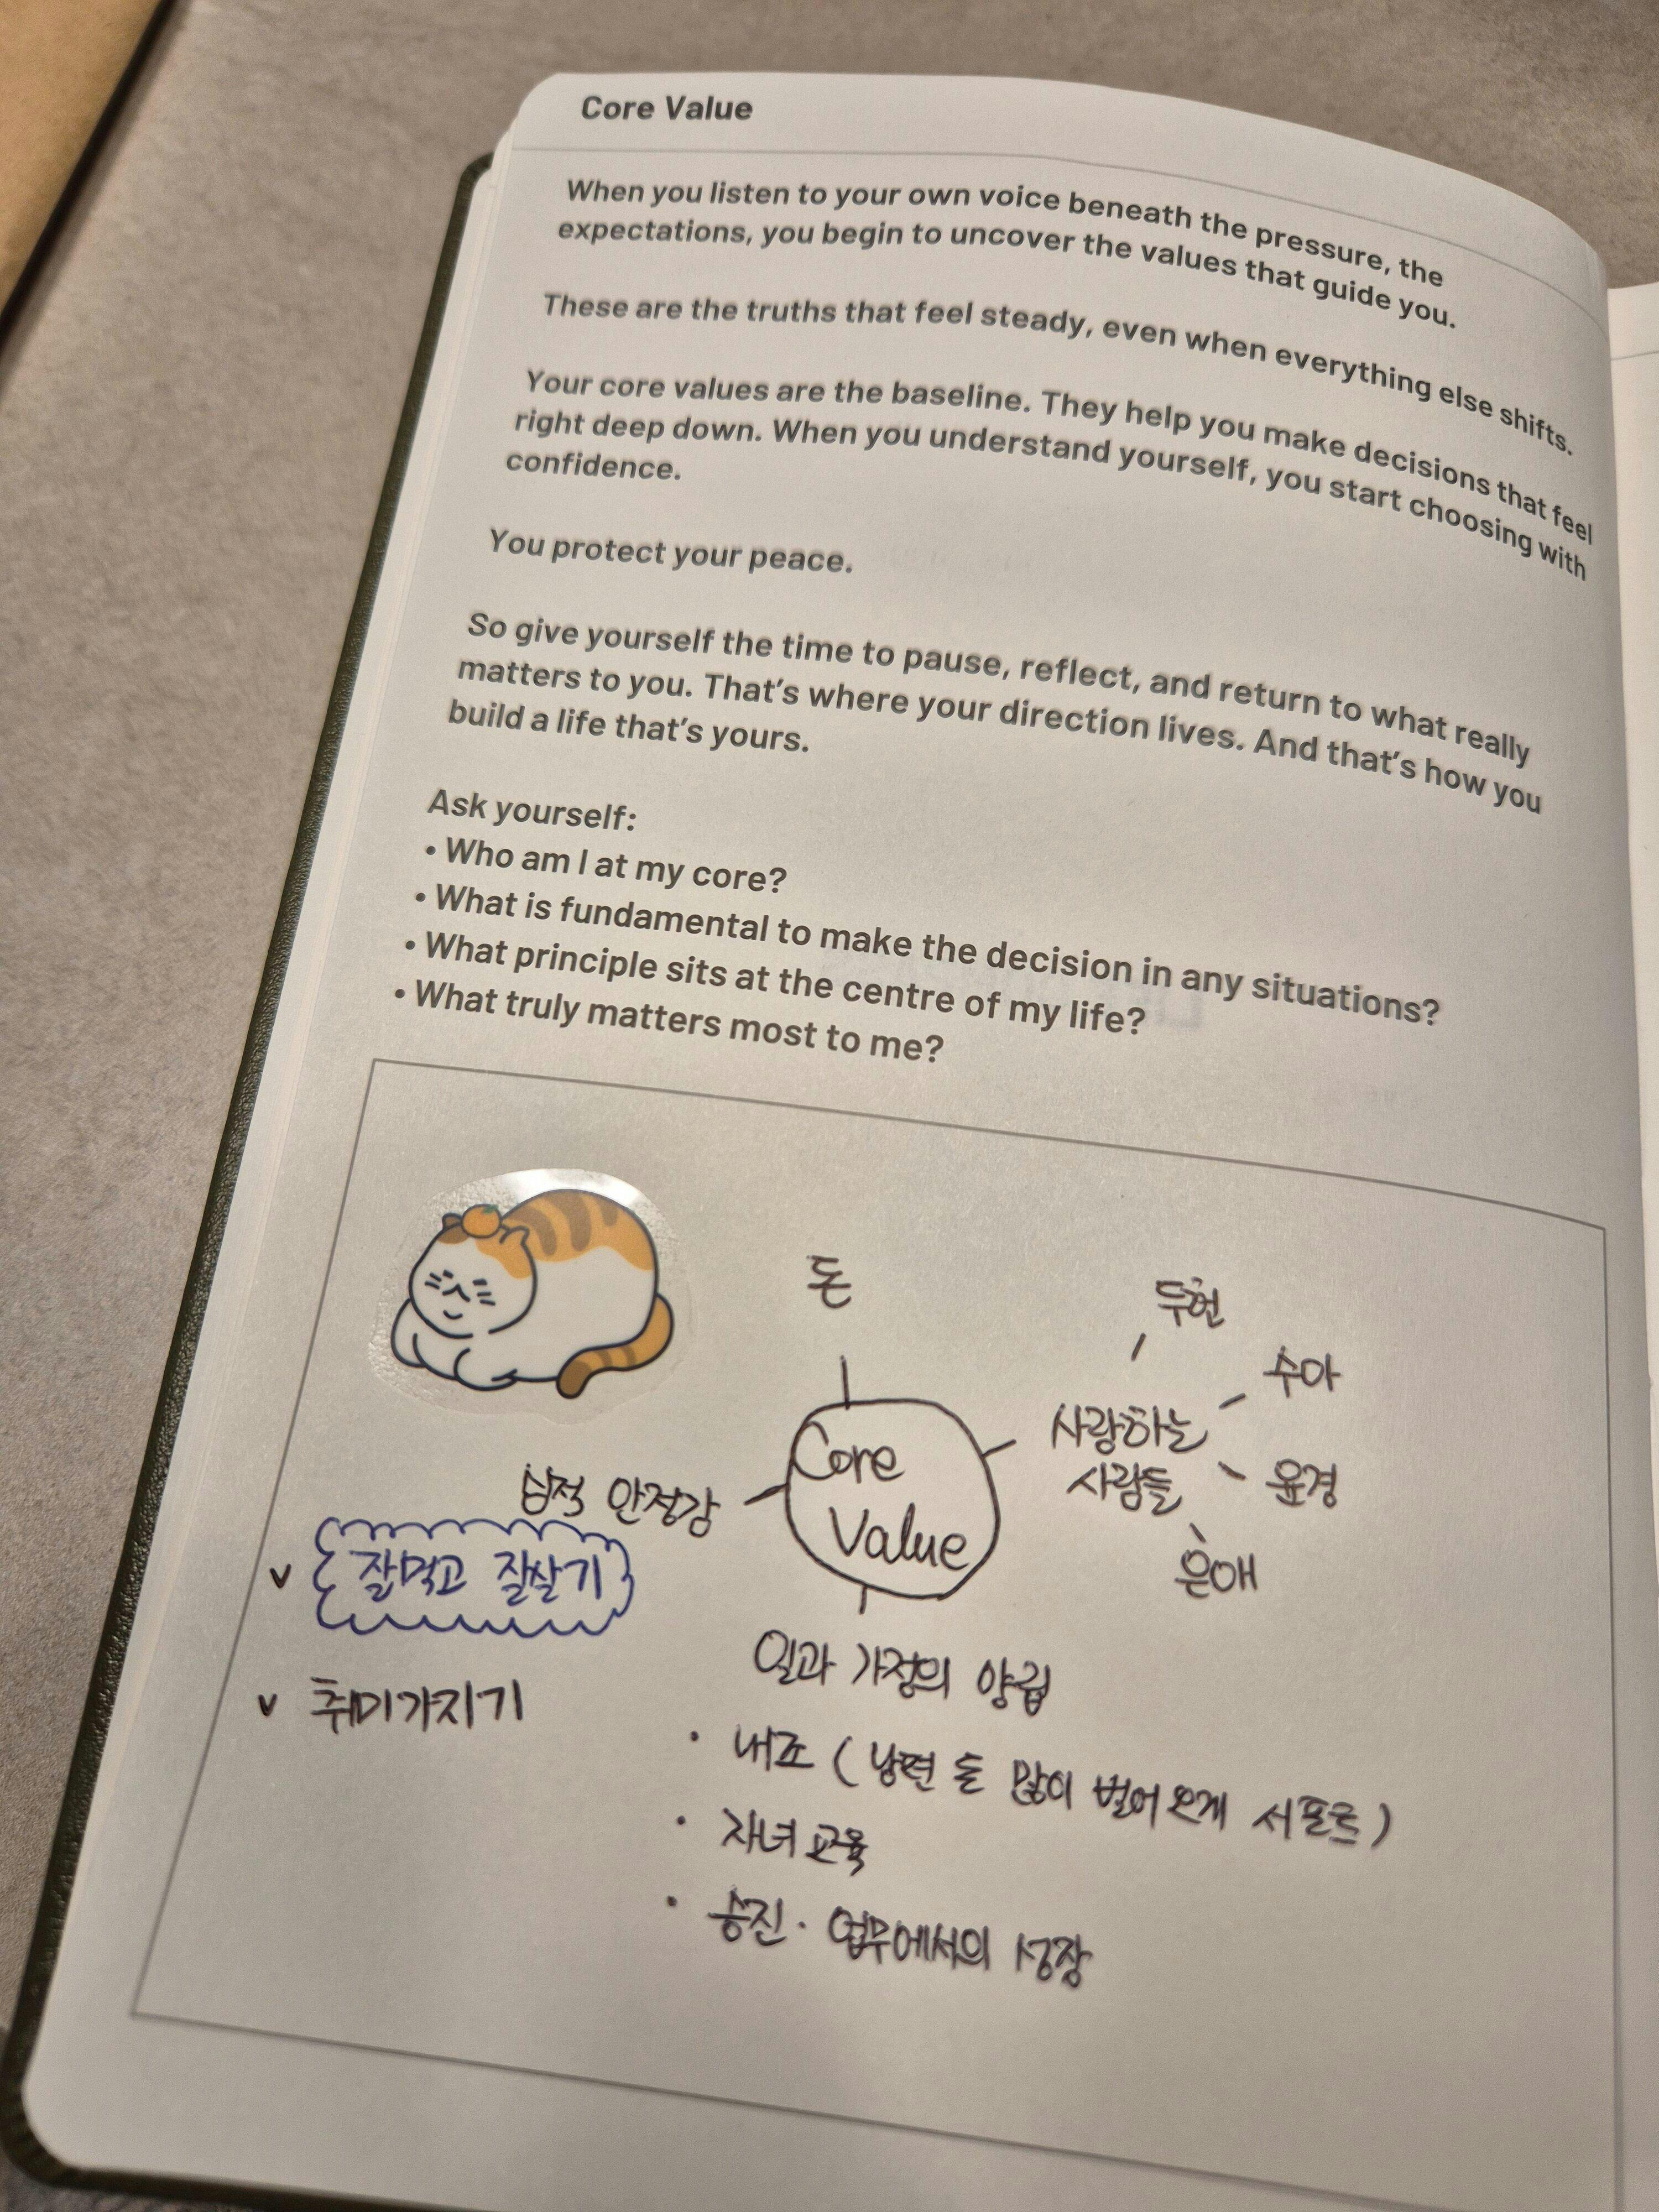 Core Value
When you listen to your own voice beneath the pressure, the
expectations, you begin to uncover the values that guide you.
These are the truths that feel steady, even when everything else shifts.
Your core values are the baseline. They help you make decisions that feel
right deep down. When you understand yourself, you start choosing with
confidence.
You protect your peace.
So give yourself the time to pause, reflect, and return to what really
matters to you. That's where your direction lives. And that's how you
build a life that's yours.
Ask yourself:
• Who am I at my core?
• What is fundamental to make the decision in any situations?
• What principle sits at the centre of my life?
• What truly matters most to me?
돈
두현
수아
사랑하는
사람들
윤경
은애
Core
Value
심적 안정감
v 잘먹고 잘살기
v 취미가지기
일과 가정의 양립
· 내조 (남편 돈 많이 벌어오게 서포트)
· 자녀교육
· 승진·업무에서의 성장